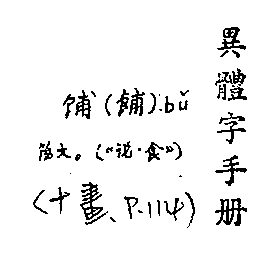 異體字手册
𫗦(餔).bǔ
文。(《说·食》)
(十畫、P.114)